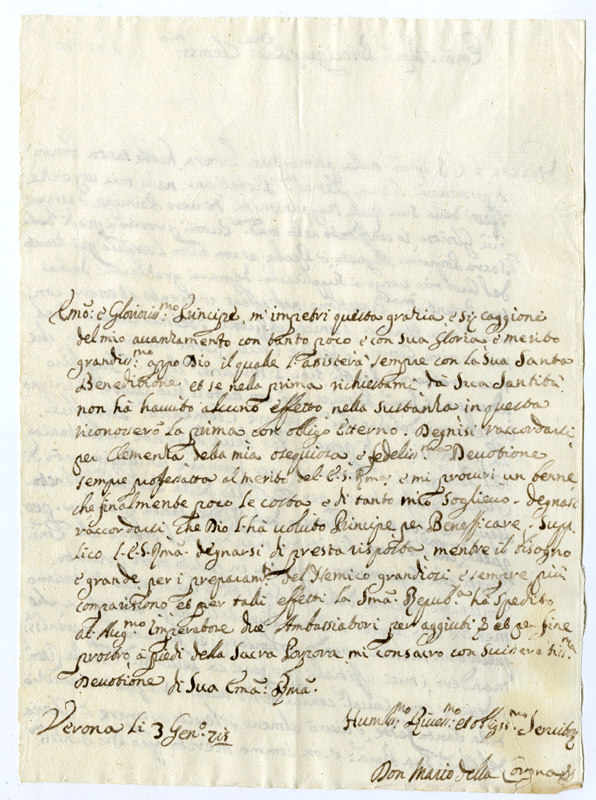 Emo: e Glorioss:mo Principe, m'impetri questa grazia e sij caggione
del mio auanzamento con tanto poco e con sua Gloria e merito
grandis:mo appo Dio il quale l'assisterà sempre con la sua Santa
Beneditione et se nella prima richiestami da Sua Santità
non hà hauuto alcuno effetto nella sustanza in questa
riconoscerò la prima con obligo Eterno. Degnisi raccordarsi
per Clemenza della mia ossequiosa e fedeliss:ma Deuotione
sempre professatta al merito del E.S. Rma: e mi procuri un benne
che finalmente poco le costa e di tanto mio Soglieuo. degnasi
raccordarsi che Dio l'hà uoluto Principe per Benefficare. Supp
lico l.E.S.Rma: degnarsi di presta risposta mentre il bisogno
e grande per i preparam:ti del Nemico grandiosi e sempre più
compariscono et per tali effetti la Sma: Repub:ca hà spedito
al Aug:mo Imperatore due Ambassiatori per aggiuti et per fine
prostro à piedi della Sacra Porpora mi consacro con suisceratiss:ma
Deuotione di Sua Ema: Rma:
Verona li 3 Gen:o
Humiliss:mo Riuer:mo et oblig:mo Seruitor
Don Mario della Corgna